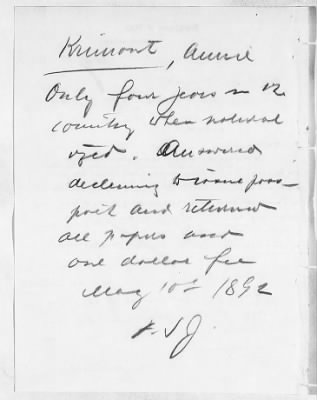 Krimont, Annie
Only four years in the
country when natural
ized. Answered
declining to issue pass-
port and returned
all papers and
one dollar fee
May 10th 1892